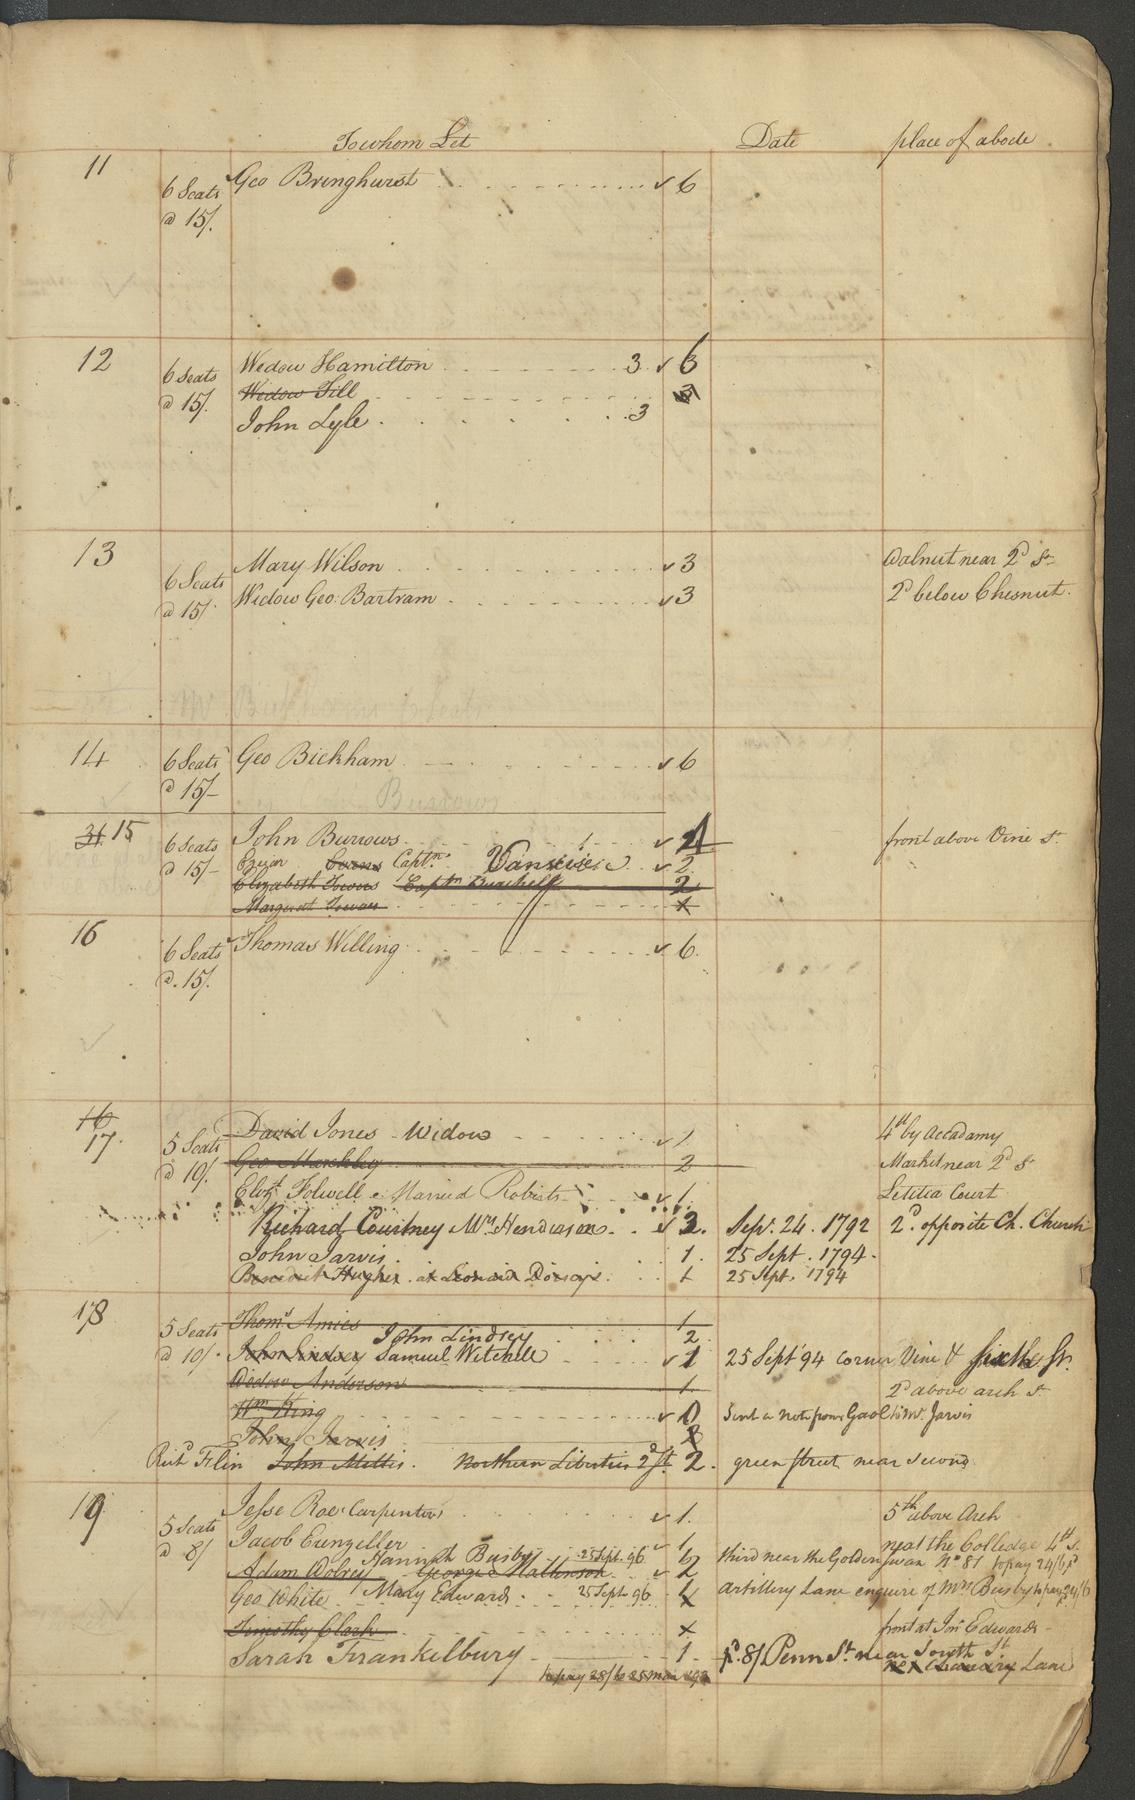 To whom Let Date place of abode
11 6 Seats Geo Bringhurst ✓ 6
@ 15/.
12 6 Seats Wedow Hamilton 3 ✓ 6
@ 15/. Wedow Till 3
John Lyle 3
13 6 Seats Mary Wilson ✓ 3 Walnut near 2d St
@ 15/ Widow Geo: Bartram ✓ 3 2d below Chesnut.
14 6 Seats Geo Bickham ✓ 6
@ 15/-
Burrows
31 15 6 Seats John Burrows ✓ front above Vine St
@ 15/- Capt.n ✓ 2
Elizabeth Towers Capt.n 2
Margaret Towers
16 6 Seats Thomas Willing ✓ 6.
@. 15/.
16
17. 5 Seats David Jones Widow ✓ 1 4th by Accadamy
@ 10/. Geo Markley 2 Market near 2d St
Elizt Folwell Married Roberts ✓ 1. Letitia Court
Richard Courtney Mrs Henderson ✓ 2. Sepr. 24. 1792 2d. opposite Ch. Church
John Jarvis 1. 25 Sept. 1794.
Benedict Hughes. at Leonard 1 25 Sept. 1794
18 5 Seats Thoms Amies 1
John Lindsey 2
@ 10/. John Lindsey Samuel Witchell ✓ 1 25 Sept '94 Corner Vine & Sixth St.
Wedow Anderson 1. 2d above arch St
Wm King ✓ 0 Sent a note from Gaol to Mr. Jarvis
John Jarvis
Richd Flin John Mettis. Northern Liberties 2d St. 2. green street near second
19 5 Seats Jesse Roe Carpenter ✓ 1. 5th above Arch
@ 8/ Jacob Eungeller ✓ 1 near the Colledge 4th S.
Hannah Busby 25 Sept. 96 third near the Golden Swan No 81 to pay 24/6 pd
Adam George Mattenson ✓ 2
Geo White Mary Edwards 25 Sept 96 Artillery Lane enquire of Mrs Busby to pay 24/6
Timothy Clark x front at Jon Edwards
Sarah Frankelbury 1. pd. 8/ Penn St. near South St
to pay 28/6 25 Mar Lane